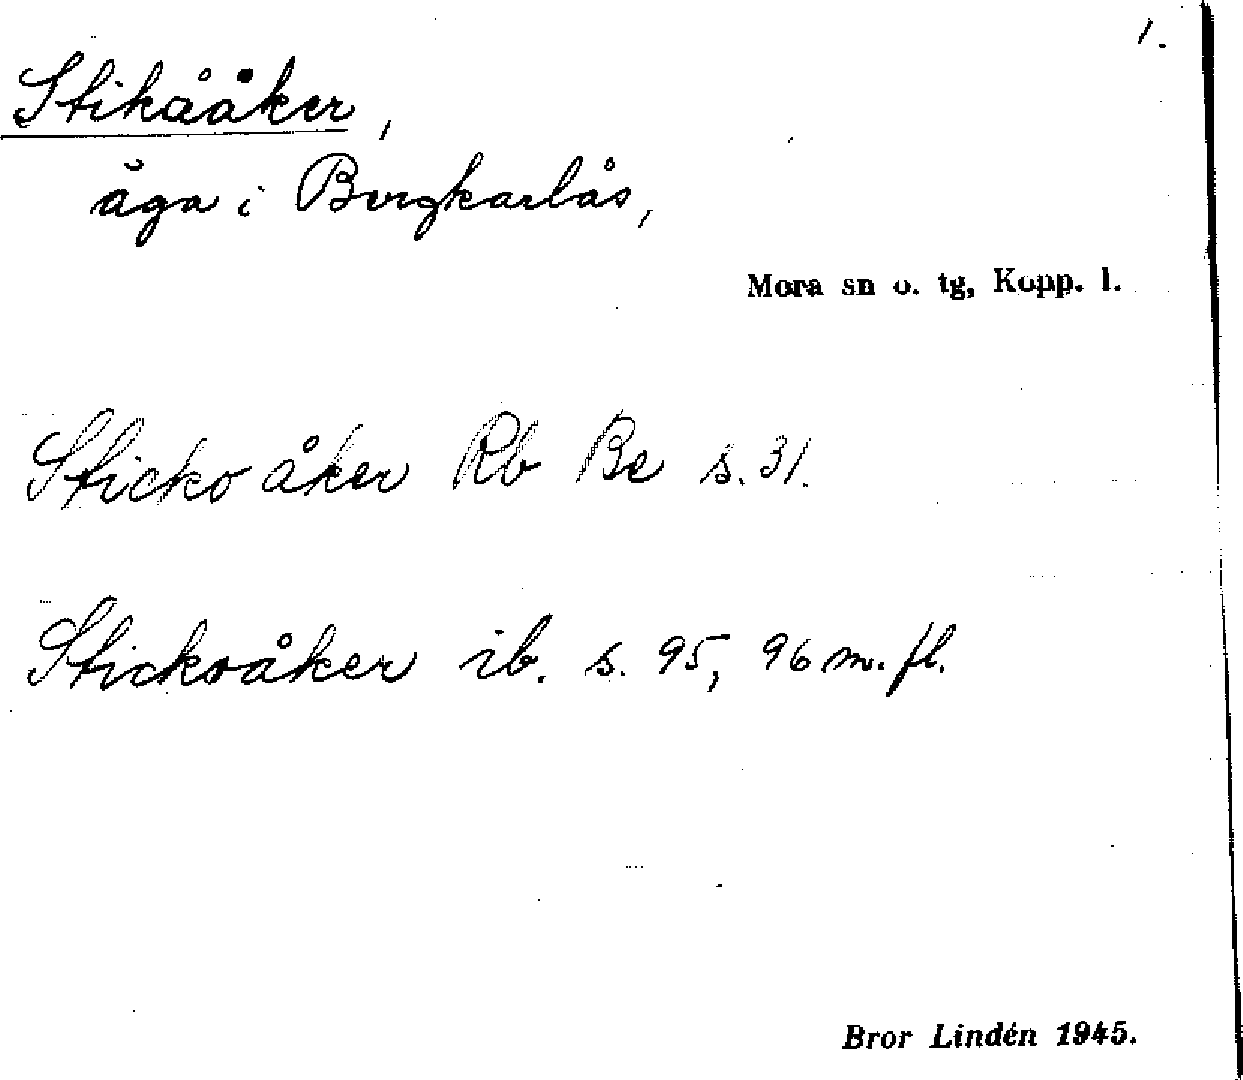 1.
Stikååker,
äga i Bergkarlås,
Mora sn o. tg, Kopp. l.
Sticko åker Rb Be s. 31.
Stickoåker ib. s. 95, 96 m. fl.
Bror Lindén 1945.